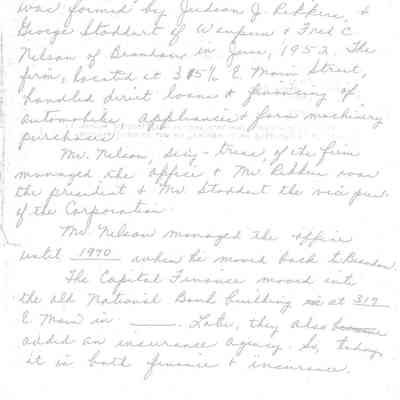 was formed by Judson J. Rikkers, &
George Stoddart of Waupun & Fred C.
Nelson of Brandon in June, 1952. The
firm, located at 315½ E. Main Street,
handled direct loans & financing of
automobiles, appliances & farm machinery
purchases.
Mr. Nelson, sec'y-treas. of the firm
managed the office & Mr. Rikkers was
the president & Mr. Stoddart the vice pres.
of the Corporation.
Mr. Nelson managed the office
until 1970 when he moved back to Brandon.
The Capital Finance moved into
the old National Bank building at 317
E. Main in ____. Later, they also became
added an insurance agency. So, today,
it is both finance & insurance.